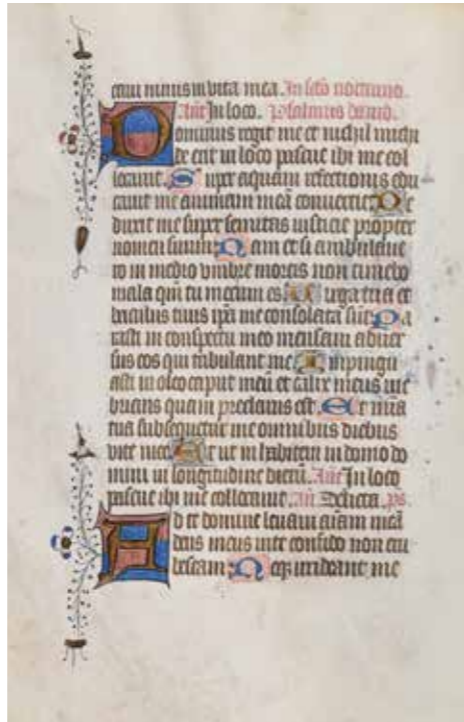 tuū minus in vita mea. In scdo nocturno.
Añt In loco. Psalmus dauid.
Dominus regit me et nichil michi
de erit in loco pascue ibi me col
locauit. Super aquam refectionis edu
cauit me animam meā conuertit De
duxit me super semitas iusticie propter
nomen suum Nam et si ambulaue
ro in medio vmbre mortis non timebo
mala qm̄ tu mecum es. Uirga tua et
baculus tuus ipā me consolata sūt Pa
rasti in conspectu meo mensam aduer
sus eos qui tribulant me Impingu
asti in oleo caput meū et calix meus ine
brians quam preclarus est. Et mīa
tua subsequetur me omnibus diebus
vite mee Et ut inhabitem in domo do
mini in longitudine dierū. Añt In loco
pascue ibi me collocauit. Añ Delicta. ps.
Ad te domine leuaui aīam meā
deus meus in te confido non eru
bescam Neqȝ irrideant me